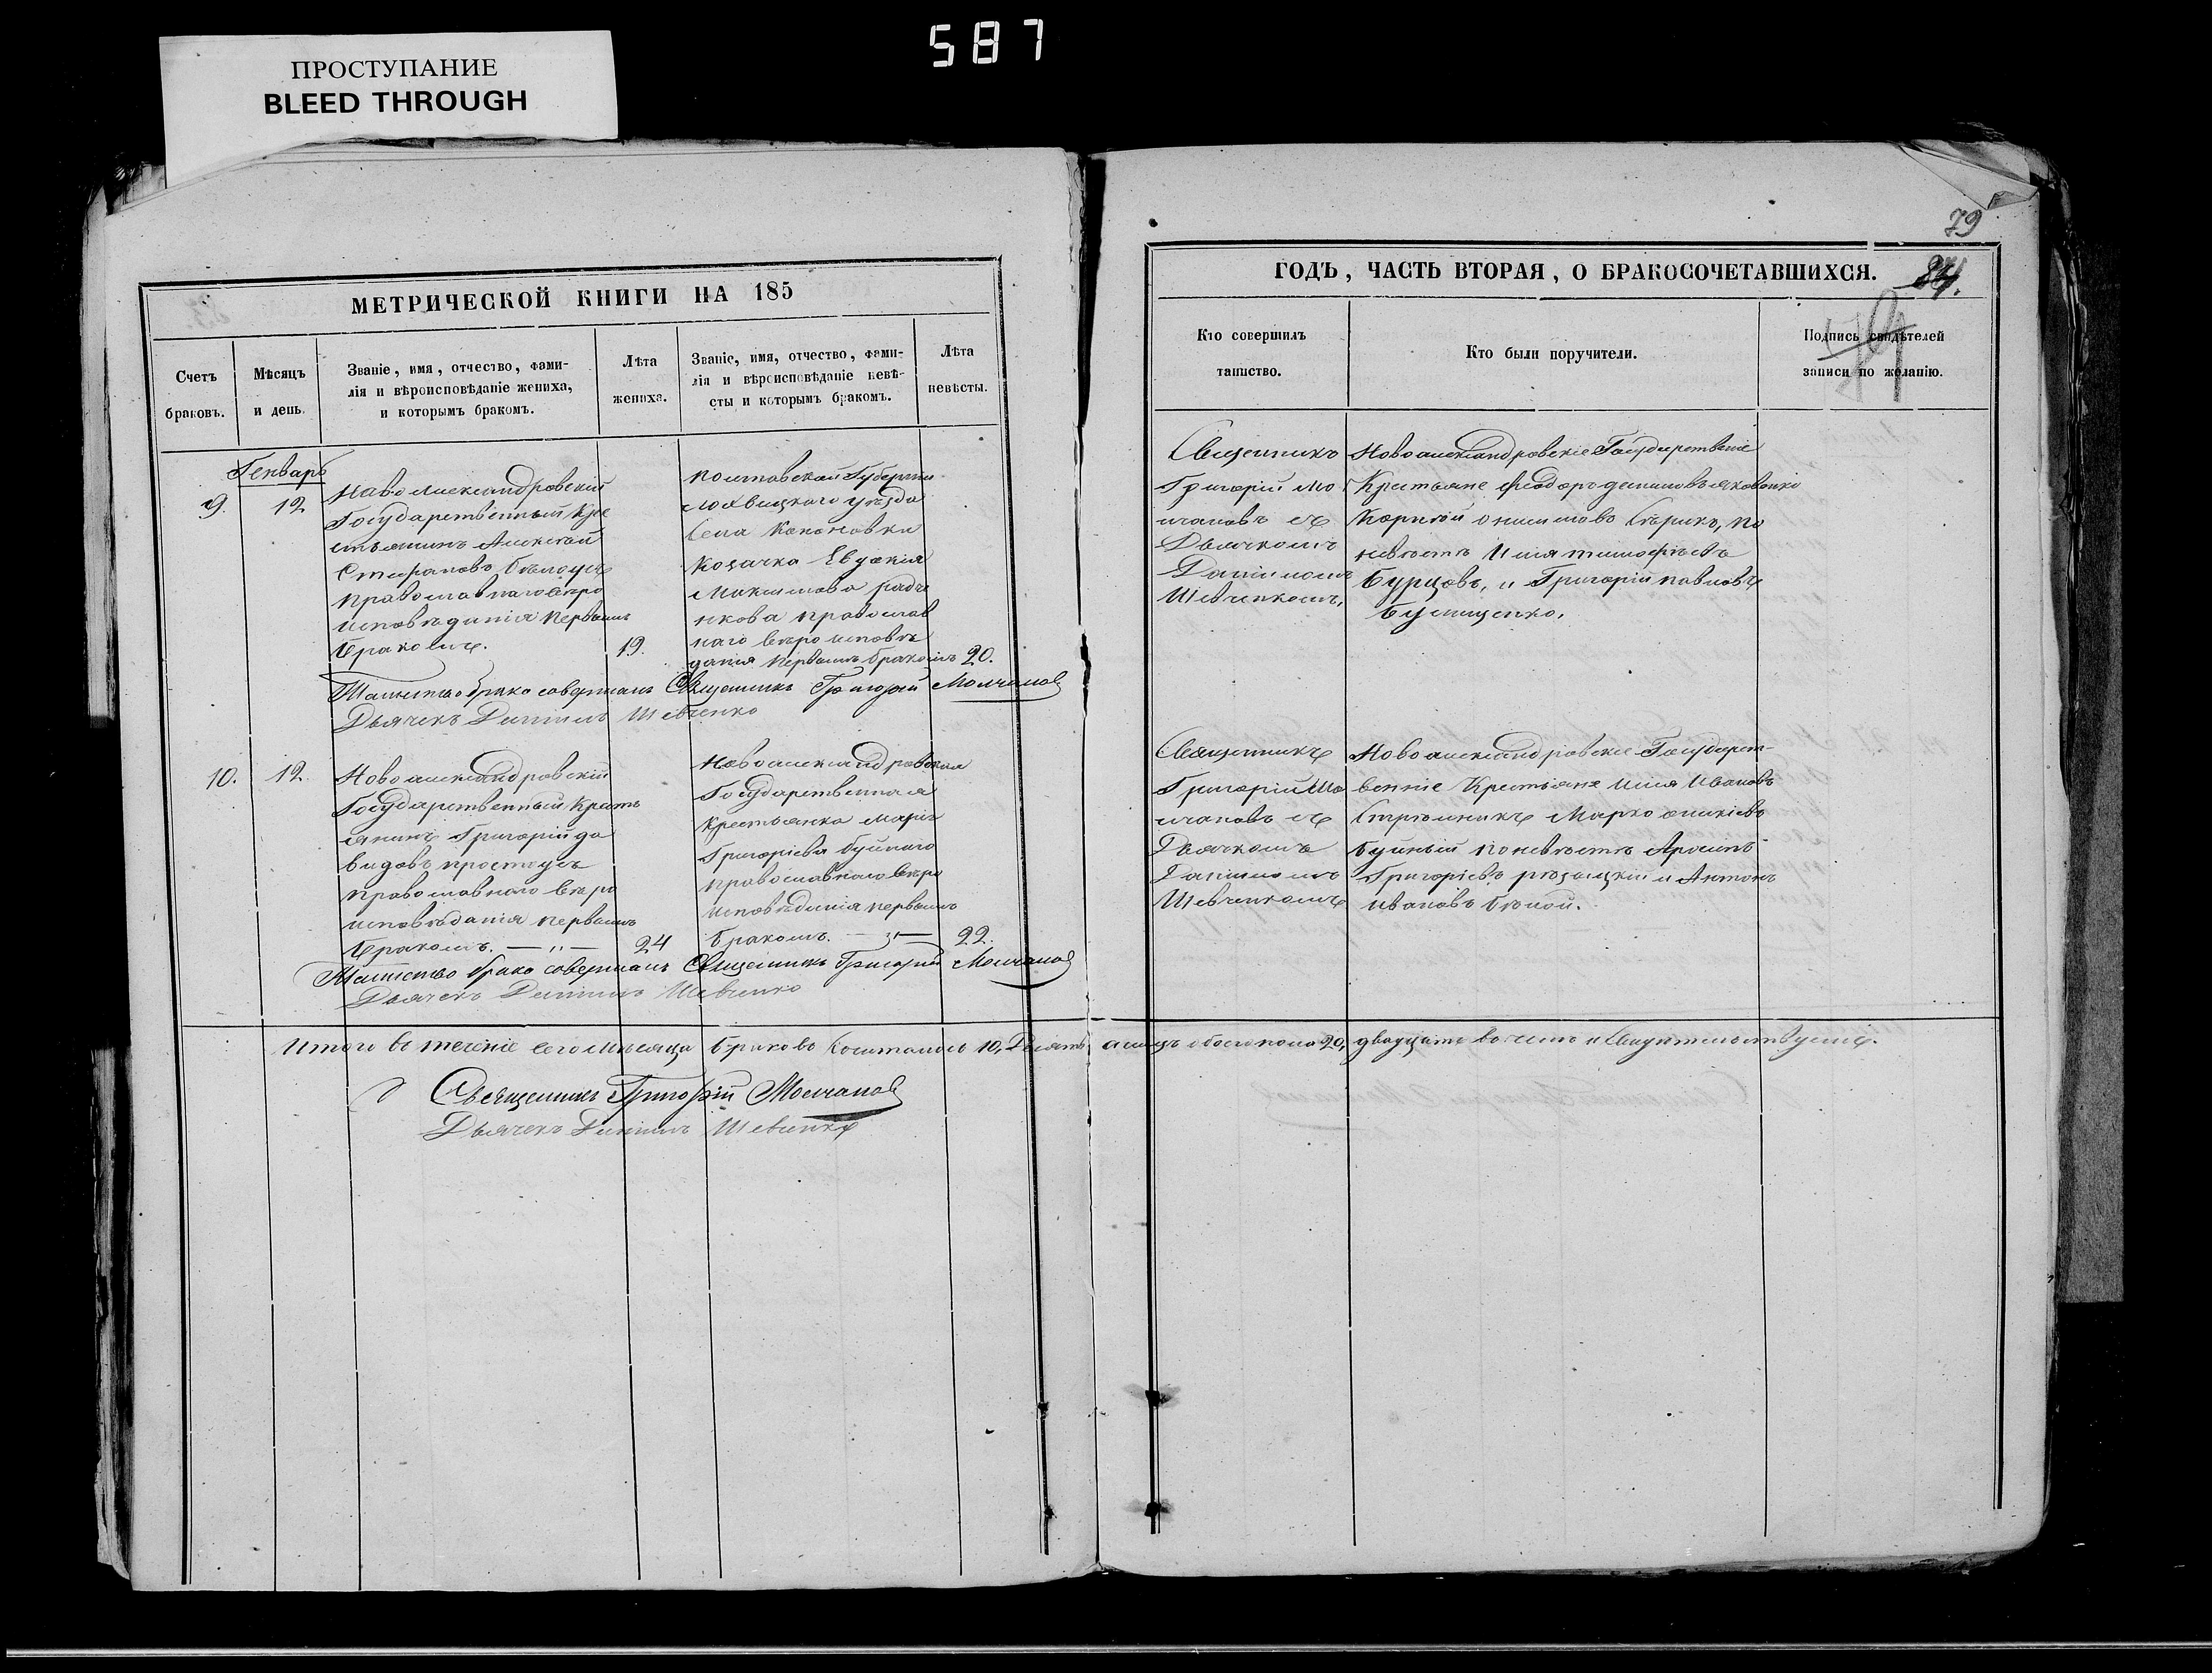 587
ПРОСТУПАНИЕ
BLEED THROUGH
МЕТРИЧЕСКОЙ КНИГИ НА 185
Счетъ браковъ.
Мѣсяцъ и день.
Званіе, имя, отчество, фами-
лія и вѣроисповѣданіе жениха,
и которымъ бракомъ.
Лѣта жениха.
Званіе, имя, отчество, фами-
лія и вѣроисповѣданіе невѣ-
сты и которымъ бракомъ.
Лѣта невѣсты.
Генварь
9.
12
Новоалександровскій
Государственный Кре
стьянинъ Алексѣй
Стефановъ Бѣлоусъ
православнаго вѣро
исповѣданія первымъ
бракомъ.
19.
Полтавской Губерніи
Лохвицкаго уѣзда
Села
Козачка Евдокія
Максимова
православ
наго вѣроисповѣ
данія первымъ бракомъ
20.
Таинство брака совершалъ Священникъ Григорій Молчановъ
Дьячекъ Даніилъ Шевченко
10.
12.
Новоалександровскій
Государственный Кресть
янинъ Григорій Да
видовъ Простоусъ
православнаго вѣро
исповѣданія первымъ
бракомъ. — „ —
24
Новоалександровская
Государственная
крестьянка Марія
Григоріева Буйнаго
православнаго вѣро
исповѣданія первымъ
бракомъ. — „ —
22.
Таинство брака совершалъ Священникъ Григорій Молчановъ
Дьячекъ Даніилъ Шевченко
Итого въ теченіе сего мѣсяца браковъ состоялось 10, Десять,
Священникъ Григорій Молчановъ
Дьячекъ Даніилъ Шевченко
79
ГОДЪ, ЧАСТЬ ВТОРАЯ, О БРАКОСОЧЕТАВШИХСЯ.
84.
79
Кто совершилъ
таинство.
Кто были поручители.
Подпись свидѣтелей
записи по желанію.
Священникъ
Григорій Мо
лчановъ съ
Дьячкомъ
Даніиломъ
Шевченкомъ.
Новоалександровскіе Государственіе
Крестьяне Феодоръ Яковенко
Корнѣй Онисимовъ по
невѣстѣ Илія Тимофѣевъ
Бурцовъ, и Григорій Павловъ
Священникъ
Григорій Мо
лчановъ съ
Дьячкомъ
Даніиломъ
Шевченкомъ
Новоалександровскіе Государст-
венніе Крестьяне Илія Ивановъ
Стрѣльникъ Марко
Буйный по невѣстѣ
Григоріевъ и Антонъ
Ивановъ Бѣлой.
а лицъ обоего пола 20, двадцать въ чемъ и Свидѣтельствуемъ.